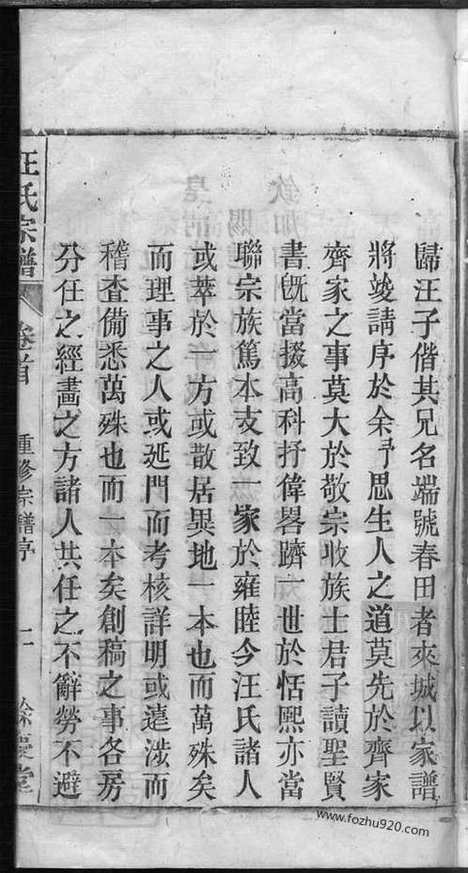 歸汪子偕其兄名端號春田者來城以家譜
將竣請序於余予思生人之道莫先於齊家
齊家之事莫大於敬宗收族士君子讀聖賢
書旣當掇高科抒偉畧躋一世於恬熙亦當
聯宗族篤本支致一家於雍睦今汪氏諸人
或萃於一方或散居異地一本也而萬殊矣
而理事之人或延門而考核詳明或遠涉而
稽查備悉萬殊也而一本矣創稿之事各房
分任之經畫之方諸人共任之不辭勞不避
汪氏宗譜 卷首 重修宗譜序 二 餘慶堂
www.fozhu920.com